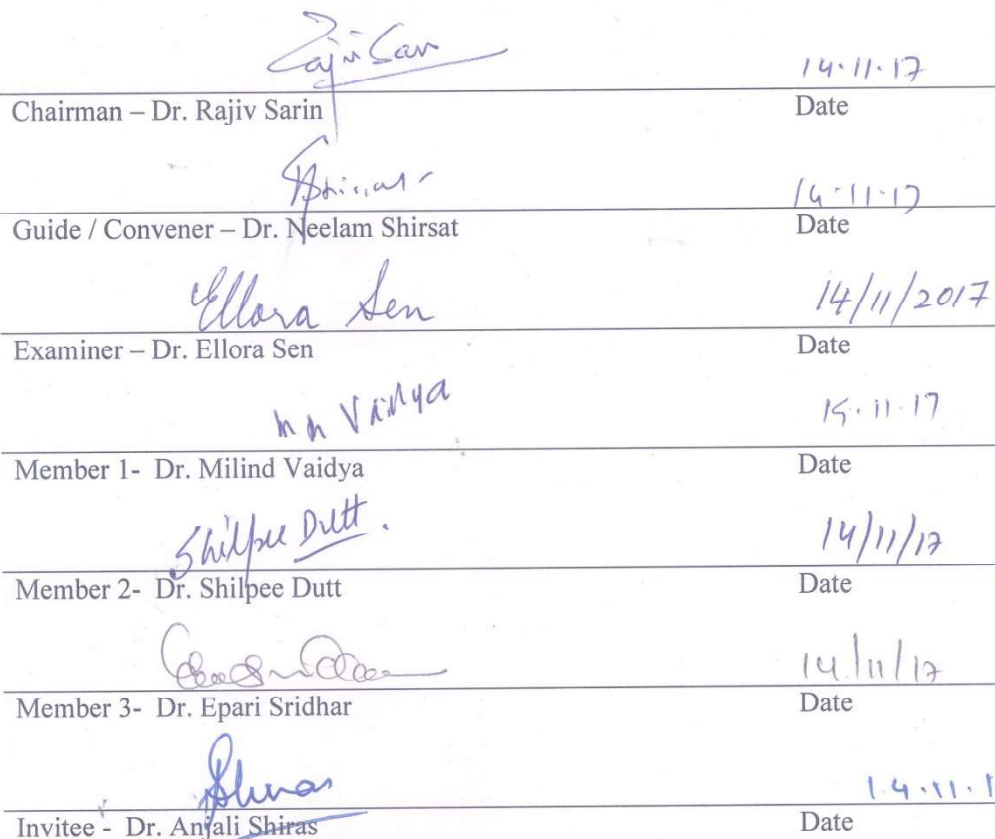 Rajiv Sarin 14.11.17
Chairman – Dr. Rajiv Sarin Date
14.11.17
Guide / Convener – Dr. Neelam Shirsat Date
Ellora Sen 14/11/2017
Examiner – Dr. Ellora Sen Date
Vaidya 11.17
Member 1- Dr. Milind Vaidya Date
Shilpee Dutt. 14/11/17
Member 2- Dr. Shilpee Dutt Date
14/11/17
Member 3- Dr. Epari Sridhar Date
14.11.1
Invitee - Dr. Anjali Shiras Date